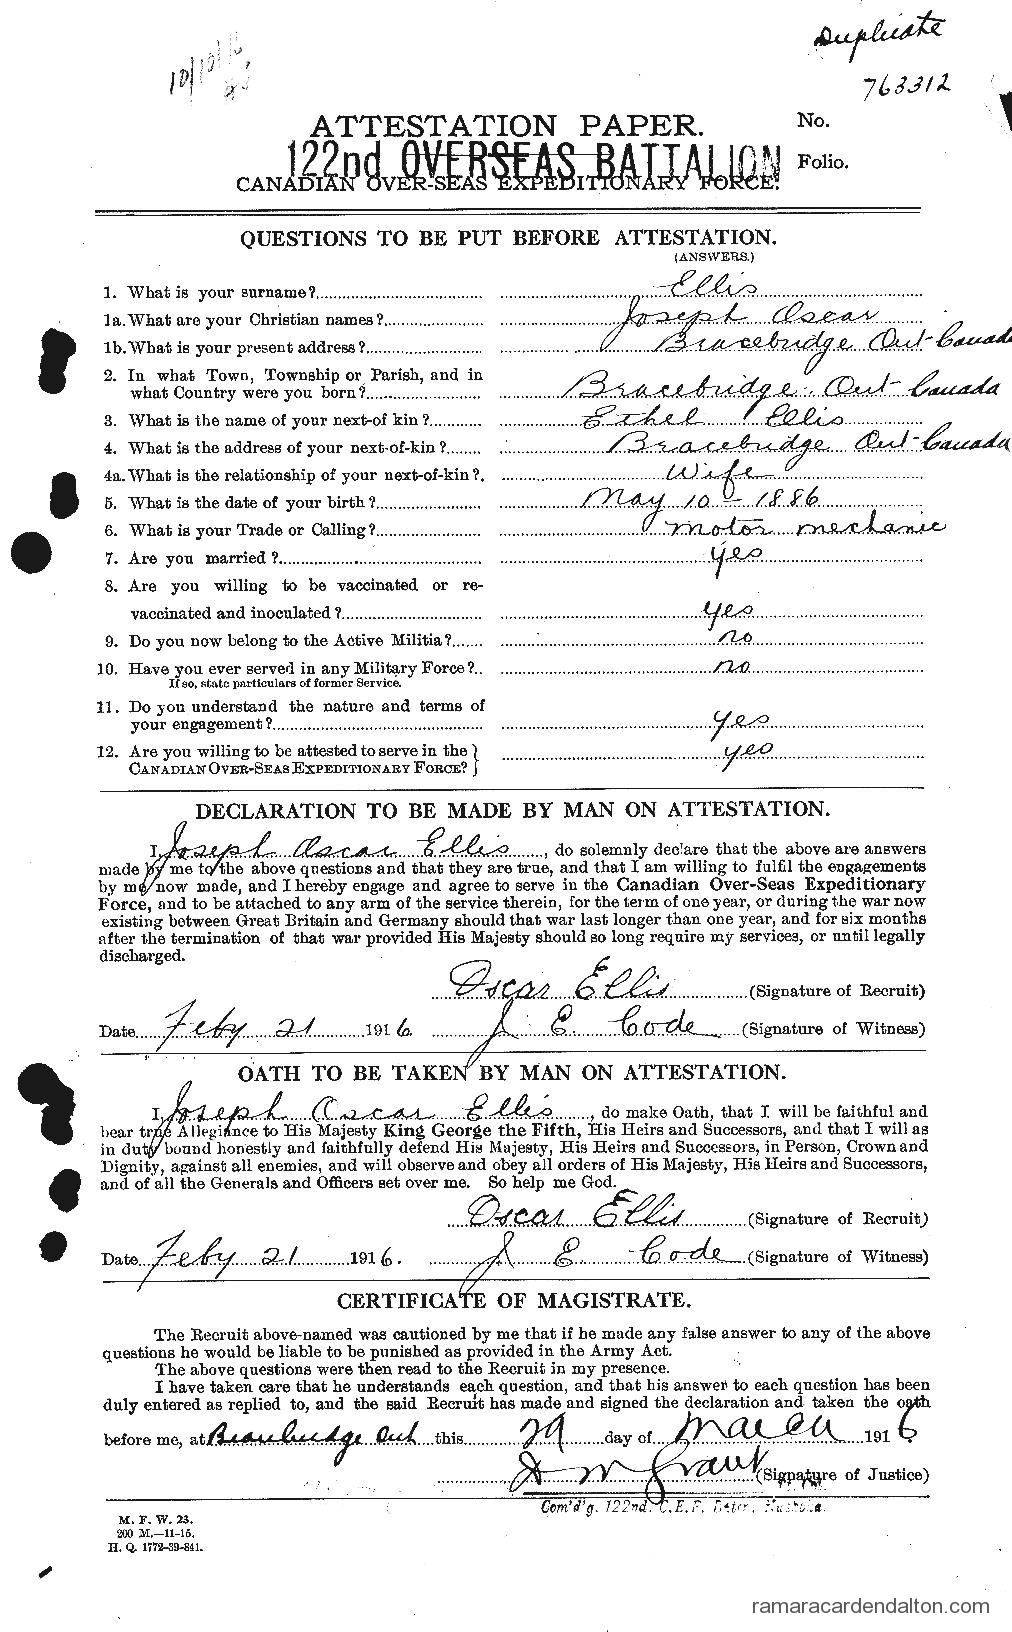 Duplicate
10/10/16
763312
ATTESTATION PAPER.
No.
122nd OVERSEAS BATTALION
Folio.
CANADIAN OVER-SEAS EXPEDITIONARY FORCE.
QUESTIONS TO BE PUT BEFORE ATTESTATION.
(ANSWERS.)
1. What is your surname? Ellis
1a. What are your Christian names? Joseph Oscar
1b. What is your present address? Bracebridge Ont-Canada
2. In what Town, Township or Parish, and in
what Country were you born? Bracebridge Ont-Canada
3. What is the name of your next-of kin? Ethel Ellis
4. What is the address of your next-of-kin? Bracebridge Ont-Canada
4a. What is the relationship of your next-of-kin? Wife
5. What is the date of your birth? May 10-1886
6. What is your Trade or Calling? Motor mechanic
7. Are you married? yes
8. Are you willing to be vaccinated or re-
vaccinated and inoculated? yes
9. Do you now belong to the Active Militia? no
10. Have you ever served in any Military Force? no
If so, state particulars of former Service.
11. Do you understand the nature and terms of
your engagement? yes
12. Are you willing to be attested to serve in the yes
CANADIAN OVER-SEAS EXPEDITIONARY FORCE?
DECLARATION TO BE MADE BY MAN ON ATTESTATION.
I, Joseph Oscar Ellis, do solemnly declare that the above are answers
made by me to the above questions and that they are true, and that I am willing to fulfil the engagements
by me now made, and I hereby engage and agree to serve in the Canadian Over-Seas Expeditionary
Force, and to be attached to any arm of the service therein, for the term of one year, or during the war now
existing between Great Britain and Germany should that war last longer than one year, and for six months
after the termination of that war provided His Majesty should so long require my services, or until legally
discharged.
Oscar Ellis (Signature of Recruit)
Date Feby 21 1916 J E Code (Signature of Witness)
OATH TO BE TAKEN BY MAN ON ATTESTATION.
I, Joseph Oscar Ellis, do make Oath, that I will be faithful and
bear true Allegiance to His Majesty King George the Fifth, His Heirs and Successors, and that I will as
in duty bound honestly and faithfully defend His Majesty, His Heirs and Successors, in Person, Crown and
Dignity, against all enemies, and will observe and obey all orders of His Majesty, His Heirs and Successors,
and of all the Generals and Officers set over me. So help me God.
Oscar Ellis (Signature of Recruit)
Date Feby 21 1916. J E Code (Signature of Witness)
CERTIFICATE OF MAGISTRATE.
The Recruit above-named was cautioned by me that if he made any false answer to any of the above
questions he would be liable to be punished as provided in the Army Act.
The above questions were then read to the Recruit in my presence.
I have taken care that he understands each question, and that his answer to each question has been
duly entered as replied to, and the said Recruit has made and signed the declaration and taken the oath
before me, at Bracebridge Ont this 29 day of March 1916
D M Grant (Signature of Justice)
Com'd'g. 122nd. C.E.F. Muskoka.
M. F. W. 23.
200 M.—11-15.
H. Q. 1772-39-841.
ramaracardendalton.com